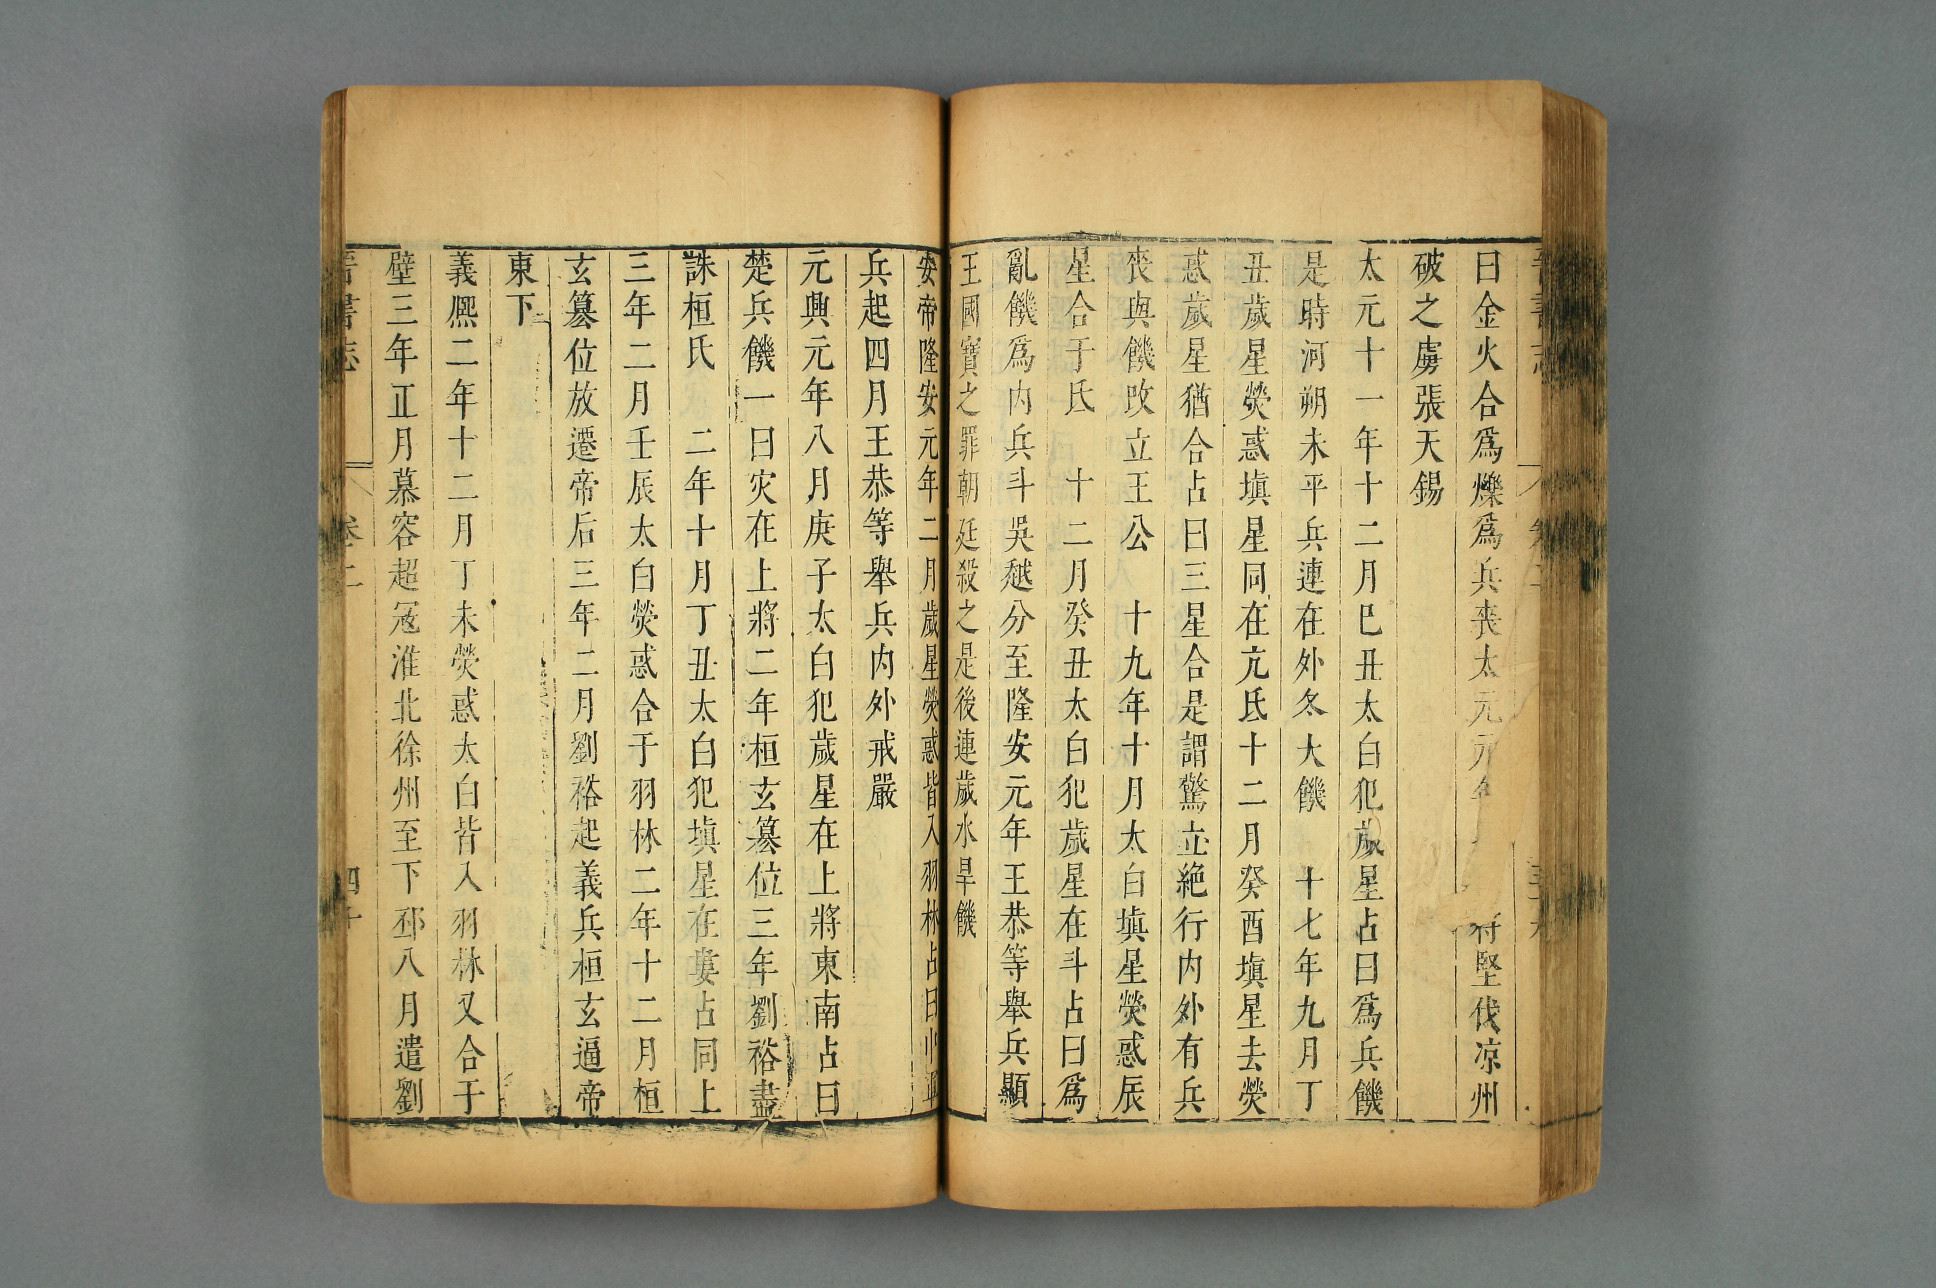 晉書志 卷二
曰金火合爲爍爲兵喪太元元年 苻堅伐凉州
破之虜張天錫
太元十一年十二月巳丑太白犯歲星占曰爲兵饑
是時河朔未平兵連在外冬大饑 十七年九月丁
丑歲星熒惑塡星同在亢氐十二月癸酉塡星去熒
惑歲星猶合占曰三星合是謂驚立絶行内外有兵
喪與饑改立王公 十九年十月太白塡星熒惑辰
星合于氐 十二月癸丑太白犯歲星在斗占曰爲
亂饑爲内兵斗吳越分至隆安元年王恭等舉兵顯
王國寶之罪朝廷殺之是後連歲水旱饑
安帝隆安元年二月歲星熒惑皆入羽林占曰中
兵起四月王恭等舉兵内外戒嚴
元興元年八月庚子太白犯歲星在上將東南占曰
楚兵饑一曰灾在上將二年桓玄簒位三年劉裕盡
誅桓氏 二年十月丁丑太白犯塡星在婁占同上
三年二月壬辰太白熒惑合于羽林二年十二月桓
玄簒位放遷帝后三年二月劉裕起義兵桓玄逼帝
東下
義熈二年十二月丁未熒惑太白皆入羽林又合于
壁三年正月慕容超寇淮北徐州至下邳八月遣劉
晉書志 卷十二 四十